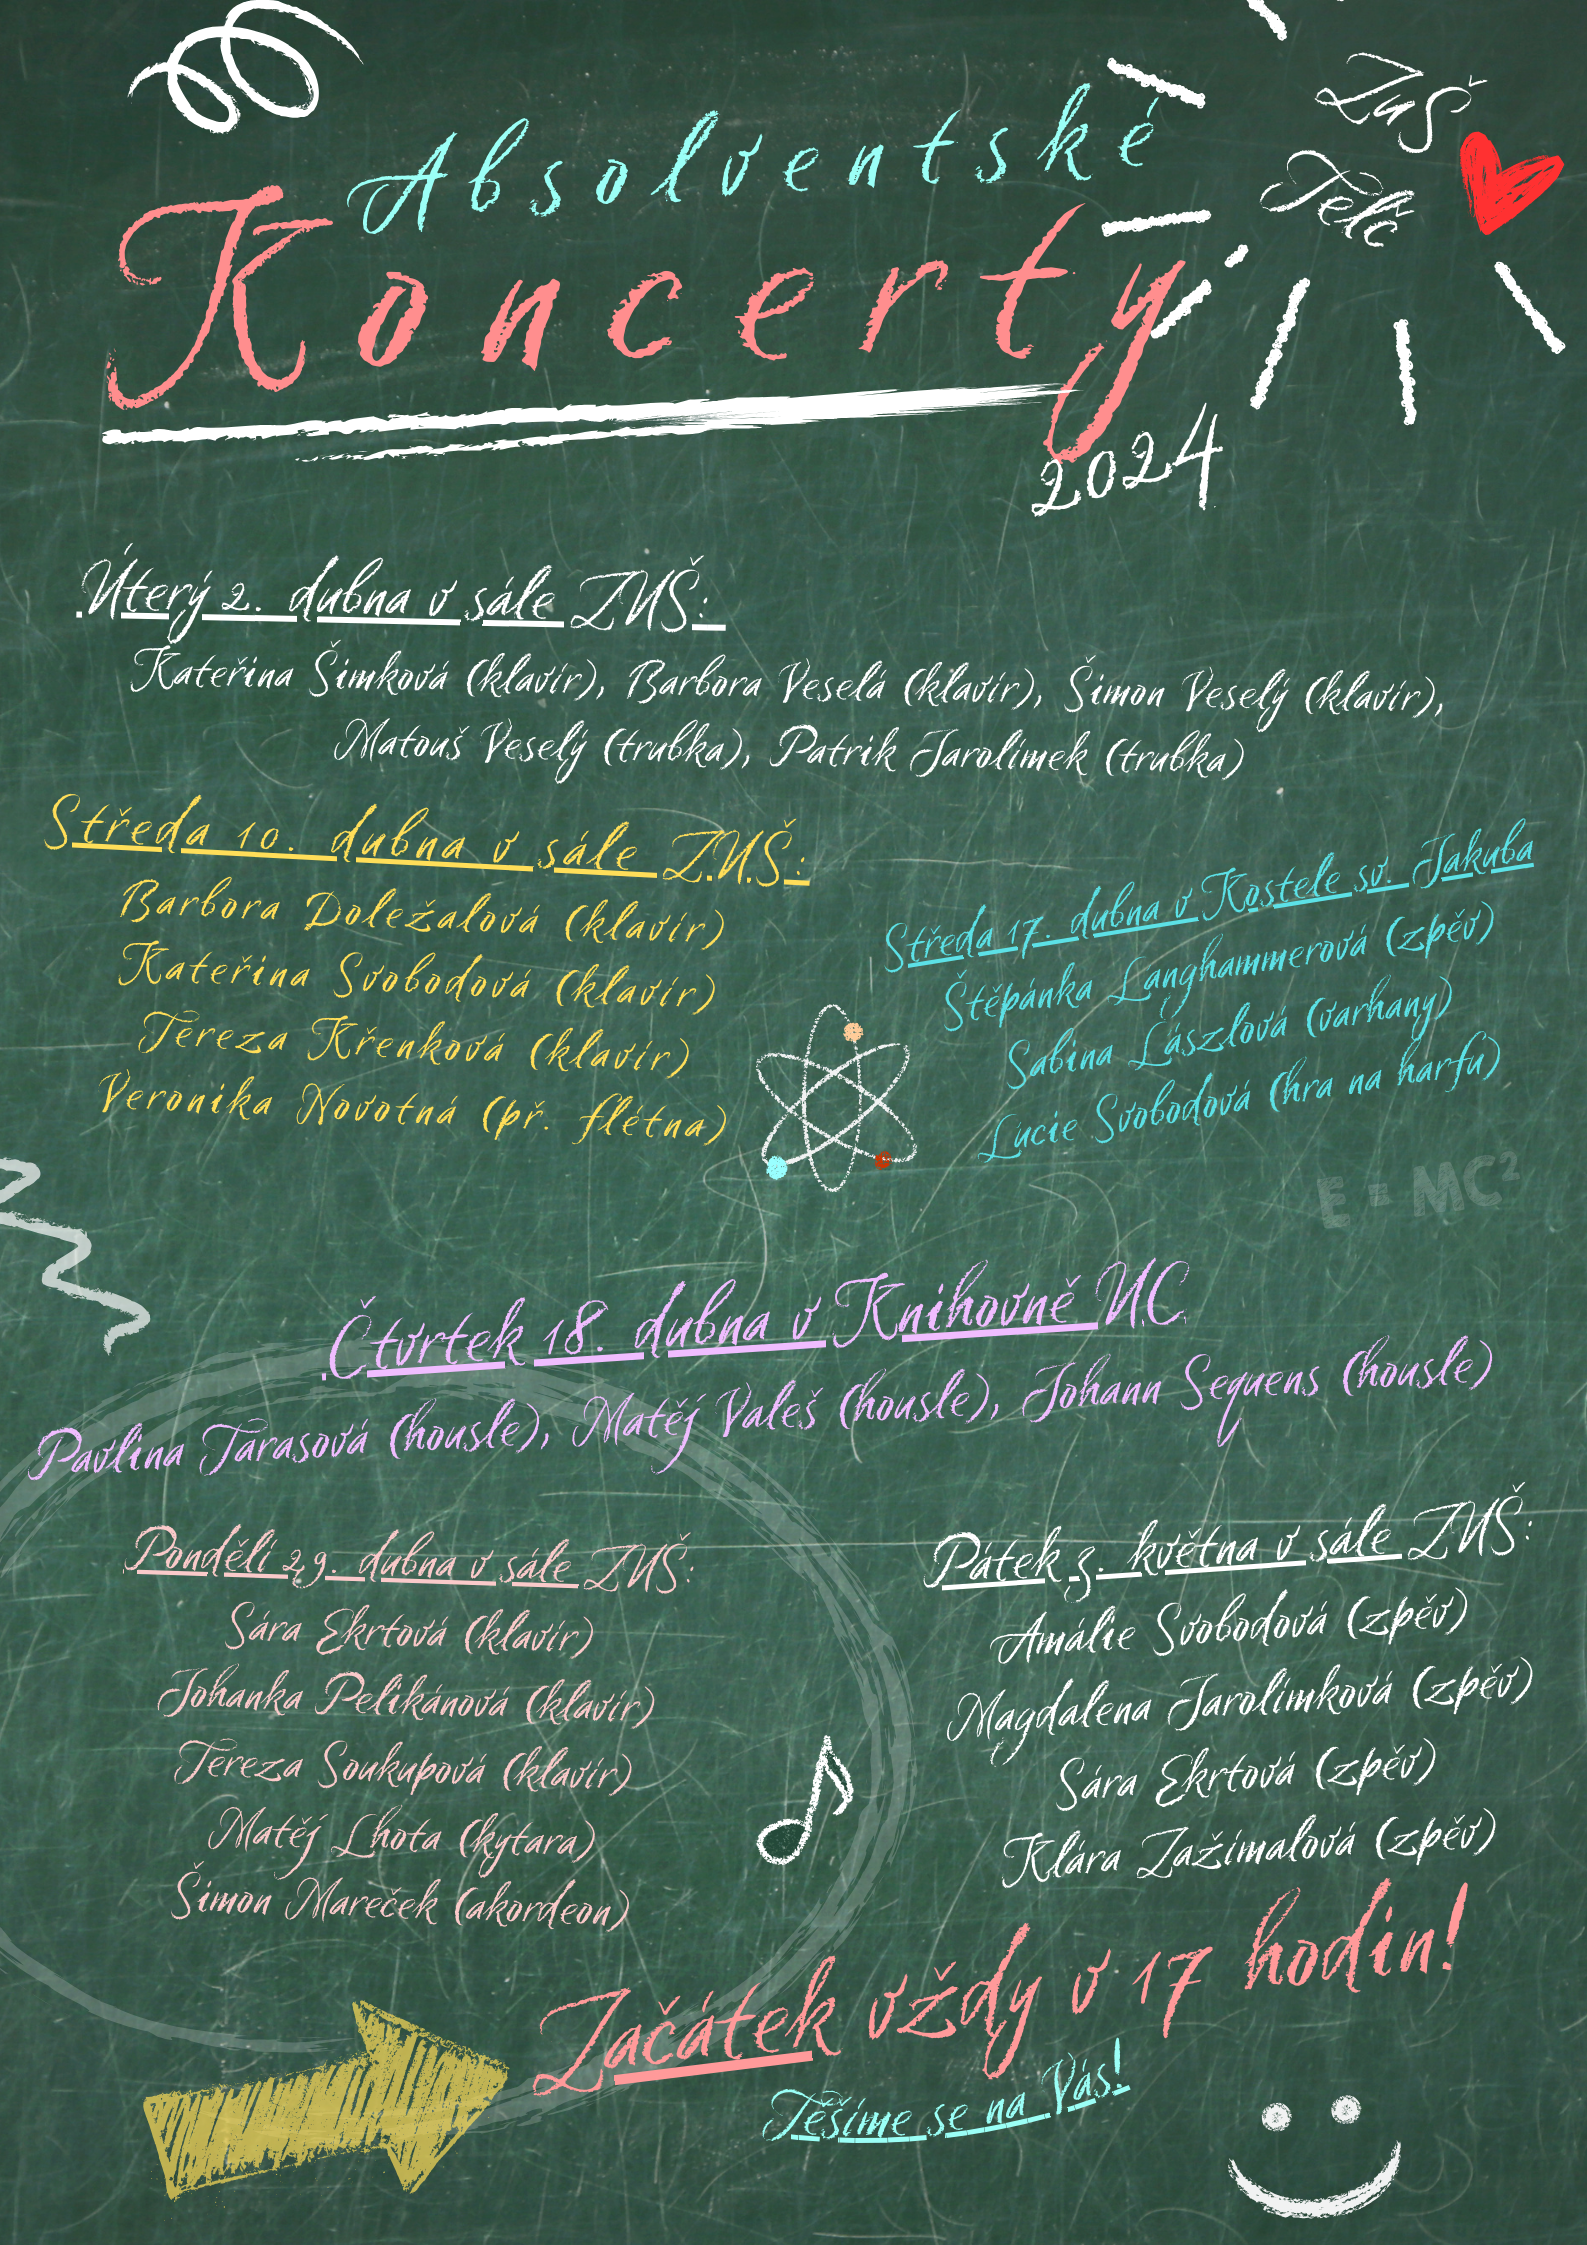 ZuŠ
Telč
Absolventské
Koncerty
2024
Úterý 2. dubna v sále ZUŠ:
Kateřina Šimková (klavír), Barbora Veselá (klavír), Šimon Veselý (klavír),
Matouš Veselý (trubka), Patrik Jarolímek (trubka)
Středa 10. dubna v sále ZUŠ:
Barbora Doležalová (klavír)
Kateřina Svobodová (klavír)
Tereza Křenková (klavír)
Veronika Novotná (př. flétna)
Středa 17. dubna v Kostele sv. Jakuba
Štěpánka Langhammerová (zpěv)
Sabina Lászlová (varhany)
Lucie Svobodová (hra na harfu)
E = MC²
Čtvrtek 18. dubna v Knihovně UC
Pavlína Tarasová (housle), Matěj Valeš (housle), Johann Sequens (housle)
Pondělí 29. dubna v sále ZUŠ:
Sára Ekrtová (klavír)
Johanka Pelikánová (klavír)
Tereza Soukupová (klavír)
Matěj Lhota (kytara)
Šimon Mareček (akordeon)
Pátek 3. května v sále ZUŠ:
Amálie Svobodová (zpěv)
Magdalena Jarolímková (zpěv)
Sára Ekrtová (zpěv)
Klára Zažímalová (zpěv)
Začátek vždy v 17 hodin!
Těšíme se na Vás!